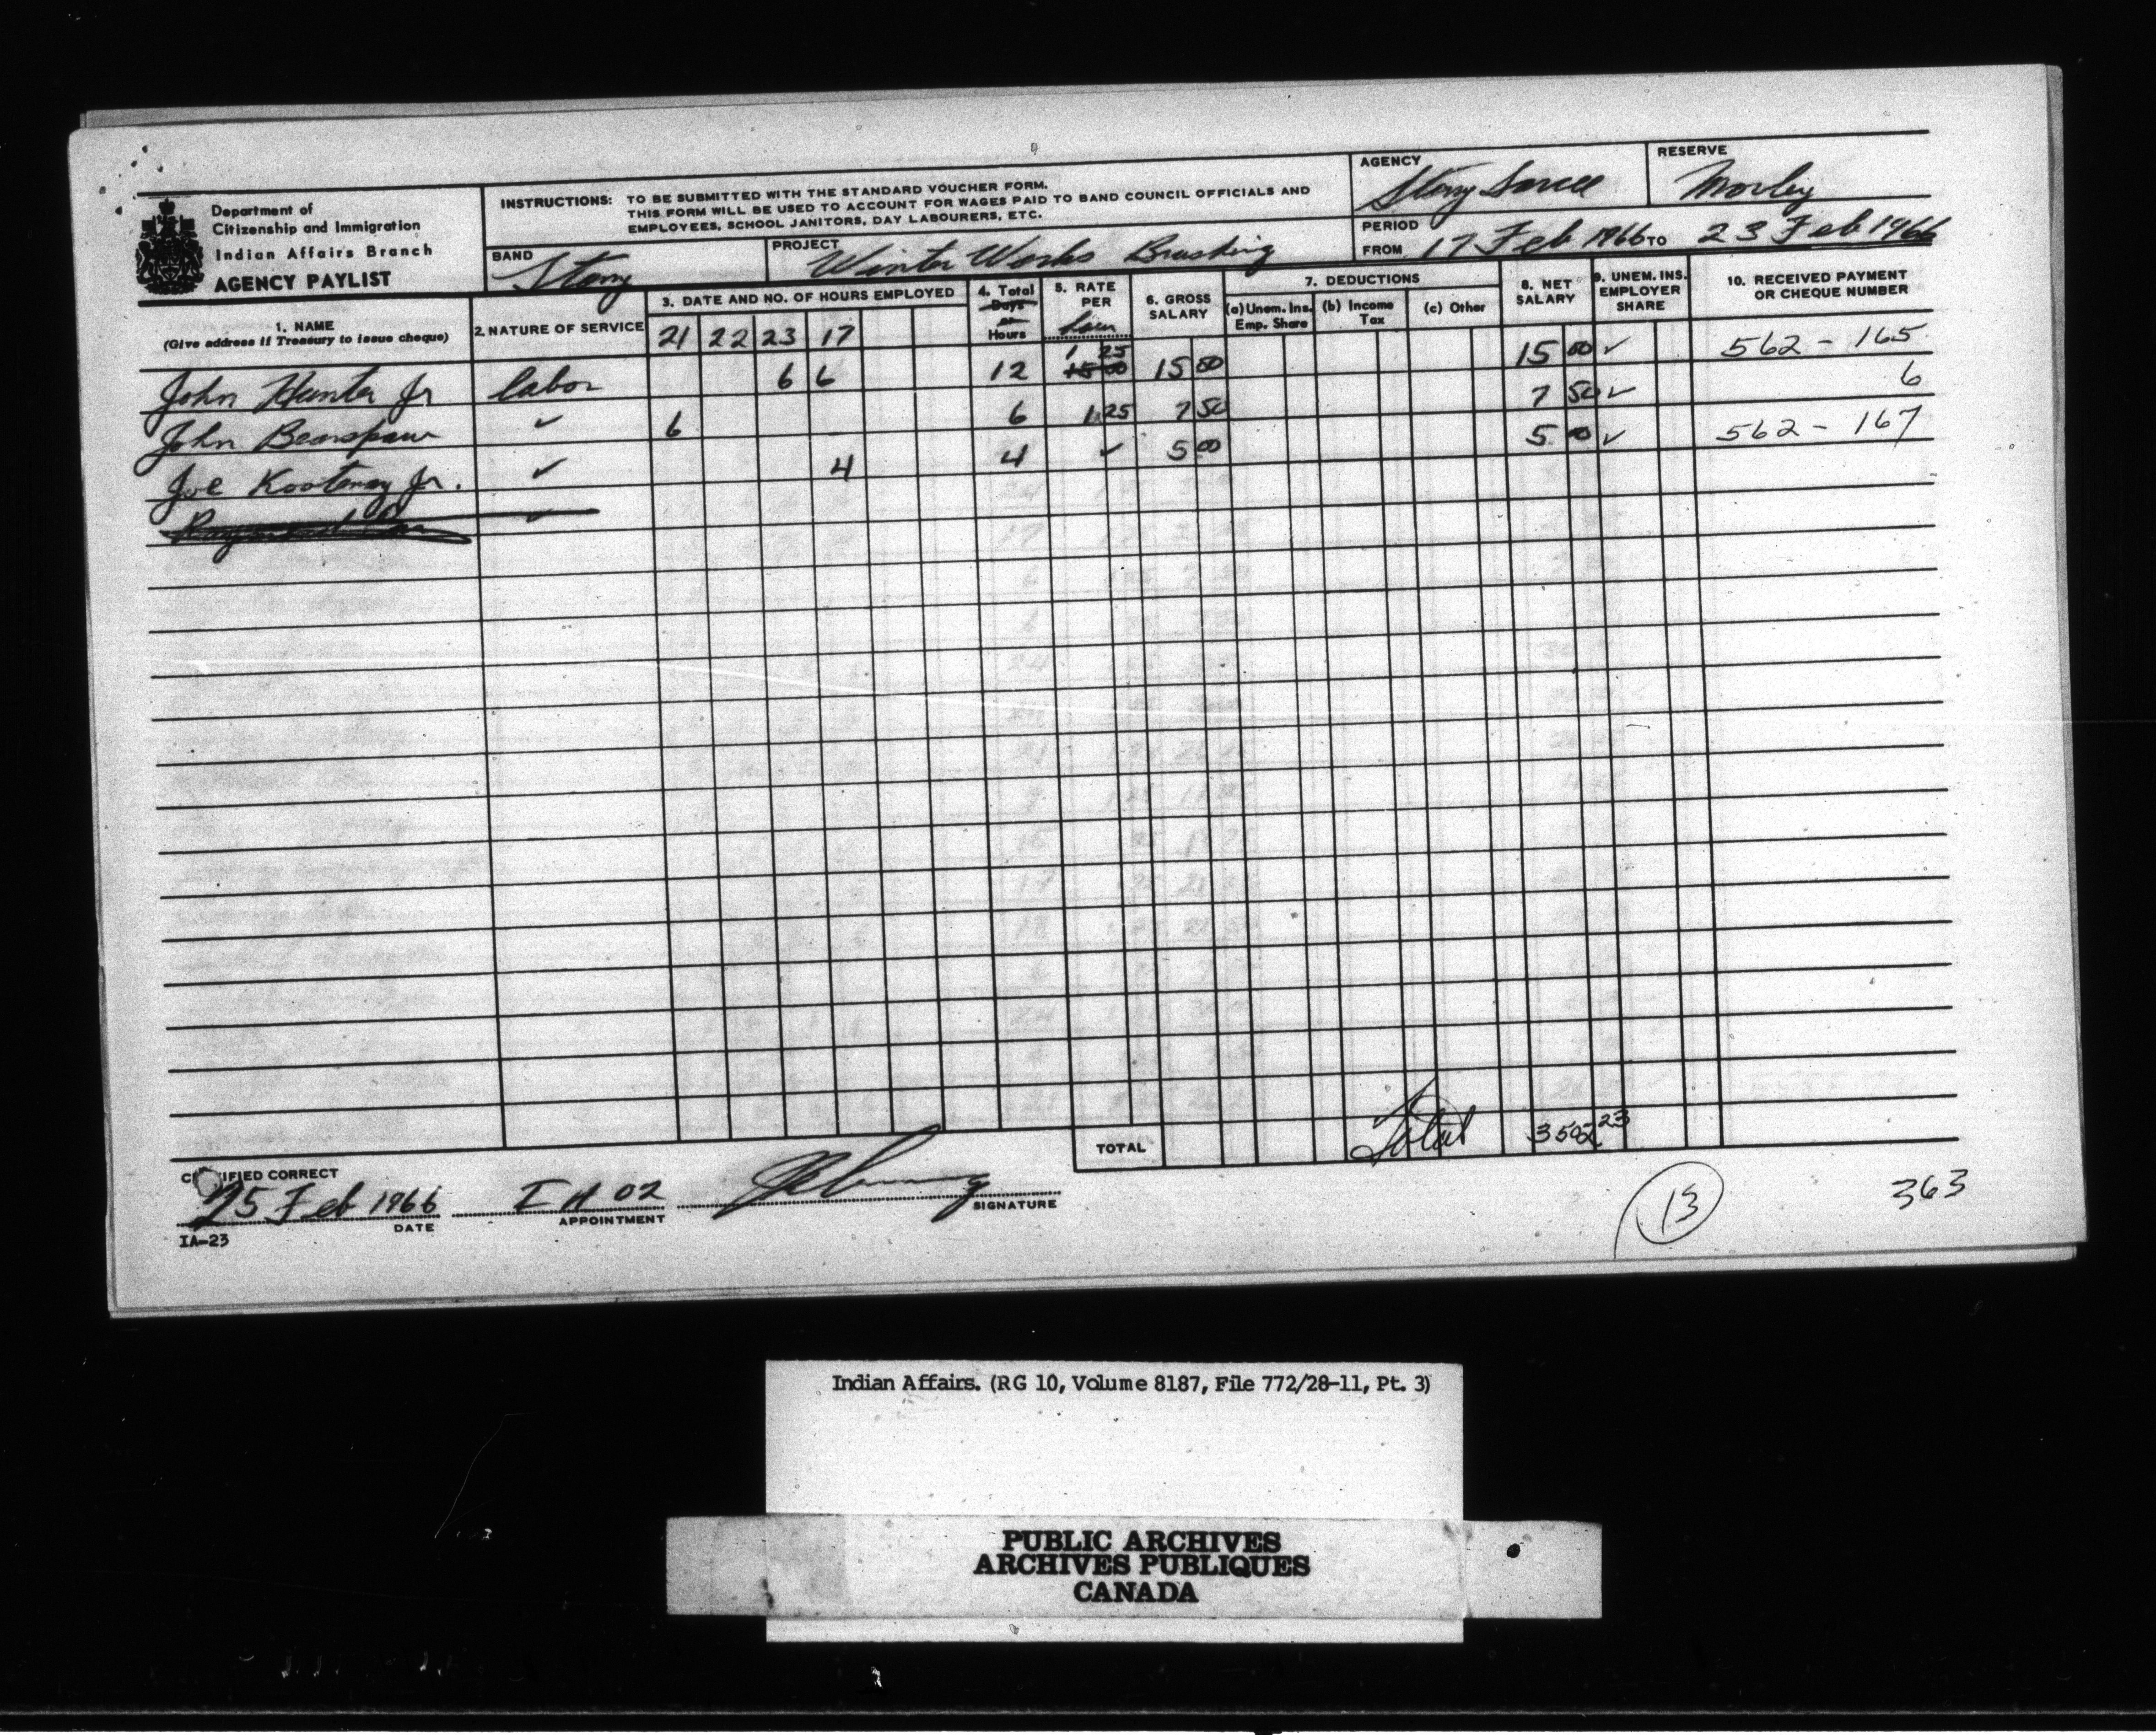 Department of
Citizenship and Immigration
Indian Affairs Branch
AGENCY PAYLIST
INSTRUCTIONS: TO BE SUBMITTED WITH THE STANDARD VOUCHER FORM.
THIS FORM WILL BE USED TO ACCOUNT FOR WAGES PAID TO BAND COUNCIL OFFICIALS AND
EMPLOYEES, SCHOOL JANITORS, DAY LABOURERS, ETC.
AGENCY Stony Sarcee
RESERVE Morley
BAND Stony
PROJECT Winter Works Brushing
PERIOD
FROM 17 Feb 1966 TO 23 Feb 1966
1. NAME
(Give address if Treasury to issue cheque)
2. NATURE OF SERVICE
3. DATE AND NO. OF HOURS EMPLOYED
21 22 23 17
4. Total
Days
or
Hours
5. RATE
PER
hour
6. GROSS
SALARY
7. DEDUCTIONS
(a) Unem. Ins.
Emp. Share
(b) Income
Tax
(c) Other
8. NET
SALARY
9. UNEM. INS.
EMPLOYER
SHARE
10. RECEIVED PAYMENT
OR CHEQUE NUMBER
John Hunter Jr labor 6 6 12 1 25 15 00 15 00 15 00 ✓ 562 - 165
John Bearspaw ✓ 6 6 1.25 7 50 7 50 ✓ 6
Joe Kootenay Jr. ✓ 4 4 ✓ 5 00 5 00 ✓ 562 - 167
✓
TOTAL Total 3502 23
CERTIFIED CORRECT
25 Feb 1966 I A 02
DATE APPOINTMENT SIGNATURE
IA-23
13
363
Indian Affairs. (RG 10, Volume 8187, File 772/28-11, Pt. 3)
PUBLIC ARCHIVES
ARCHIVES PUBLIQUES
CANADA